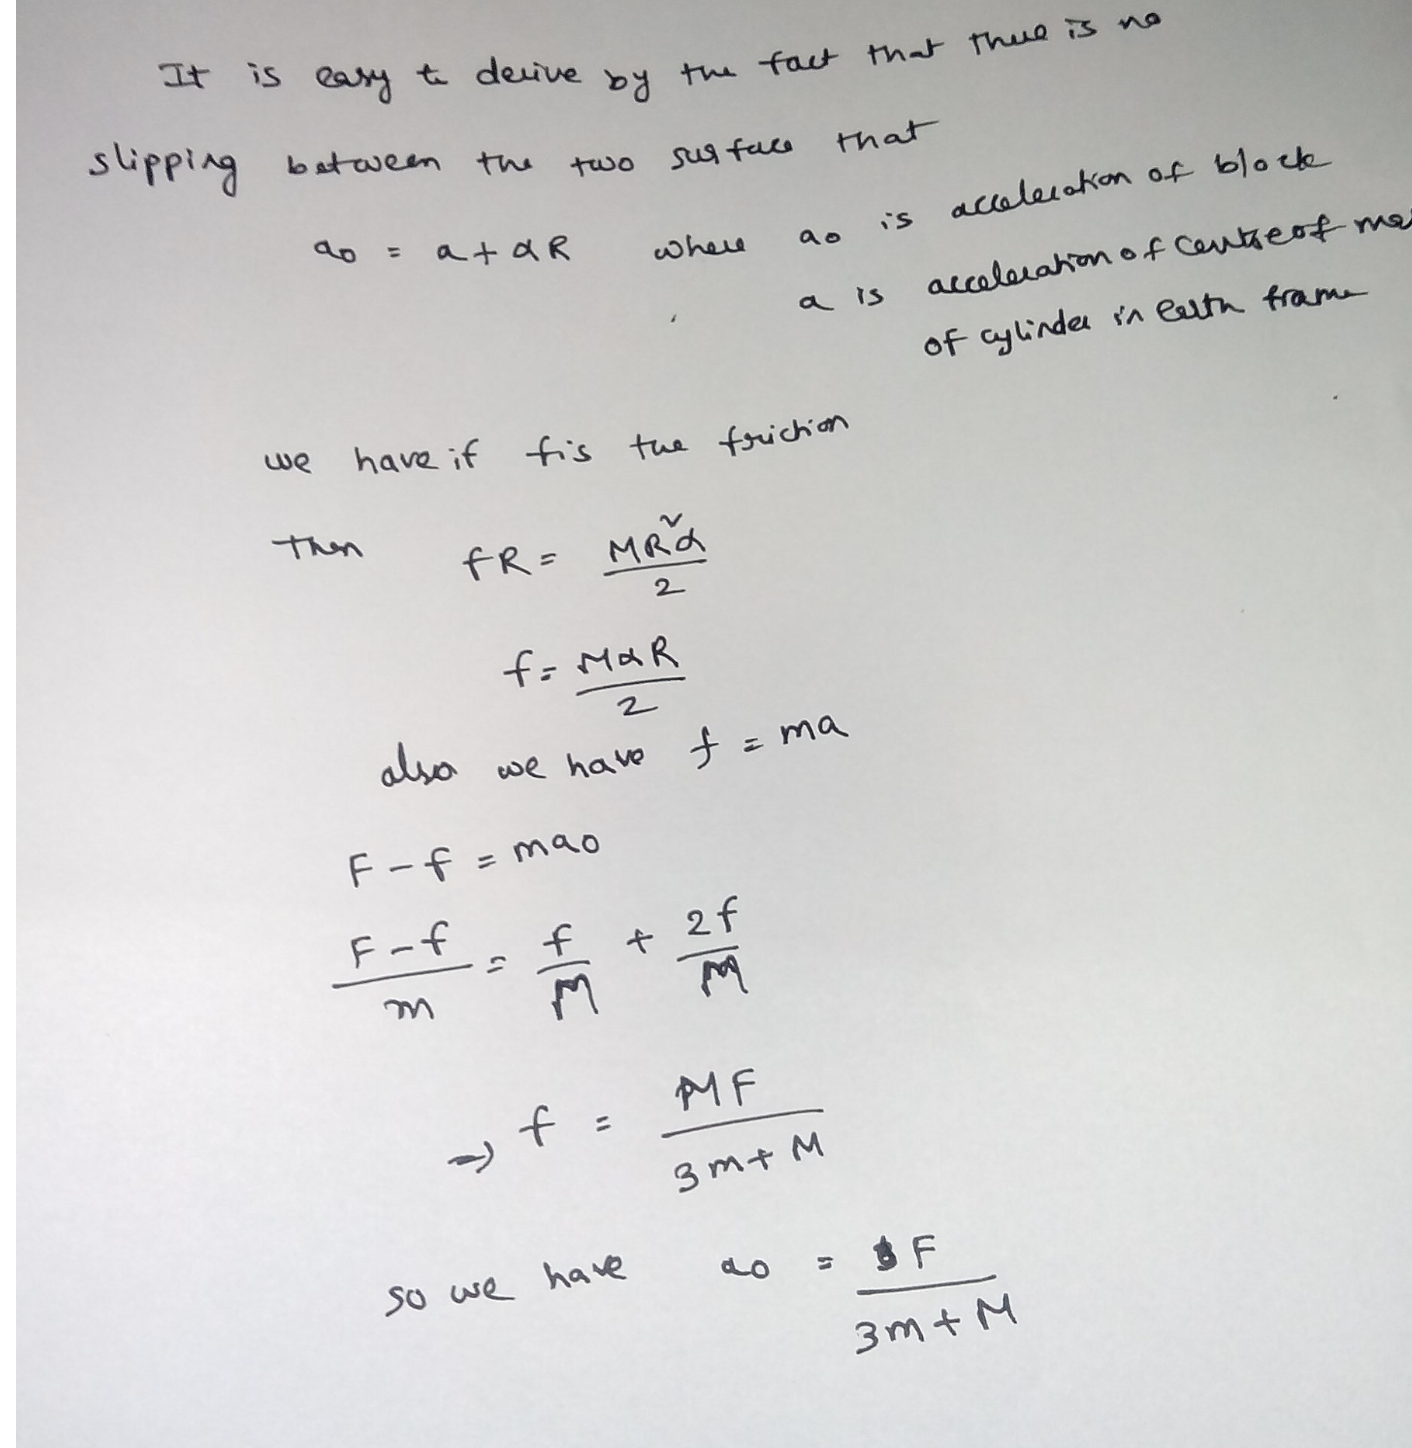 It is easy to derive by the fact that there is no
slipping between the two surface that
a0 = a + αR where a0 is acceleration of block
a is acceleration of centre of mas
of cylinder in earth frame
we have if f is the friction
Then fR = MR²α / 2
f = MαR / 2
also we have f = ma
F - f = ma0
(F - f) / m = f / M + 2f / M
⇒ f = MF / (3m + M)
so we have a0 = F / (3m + M)